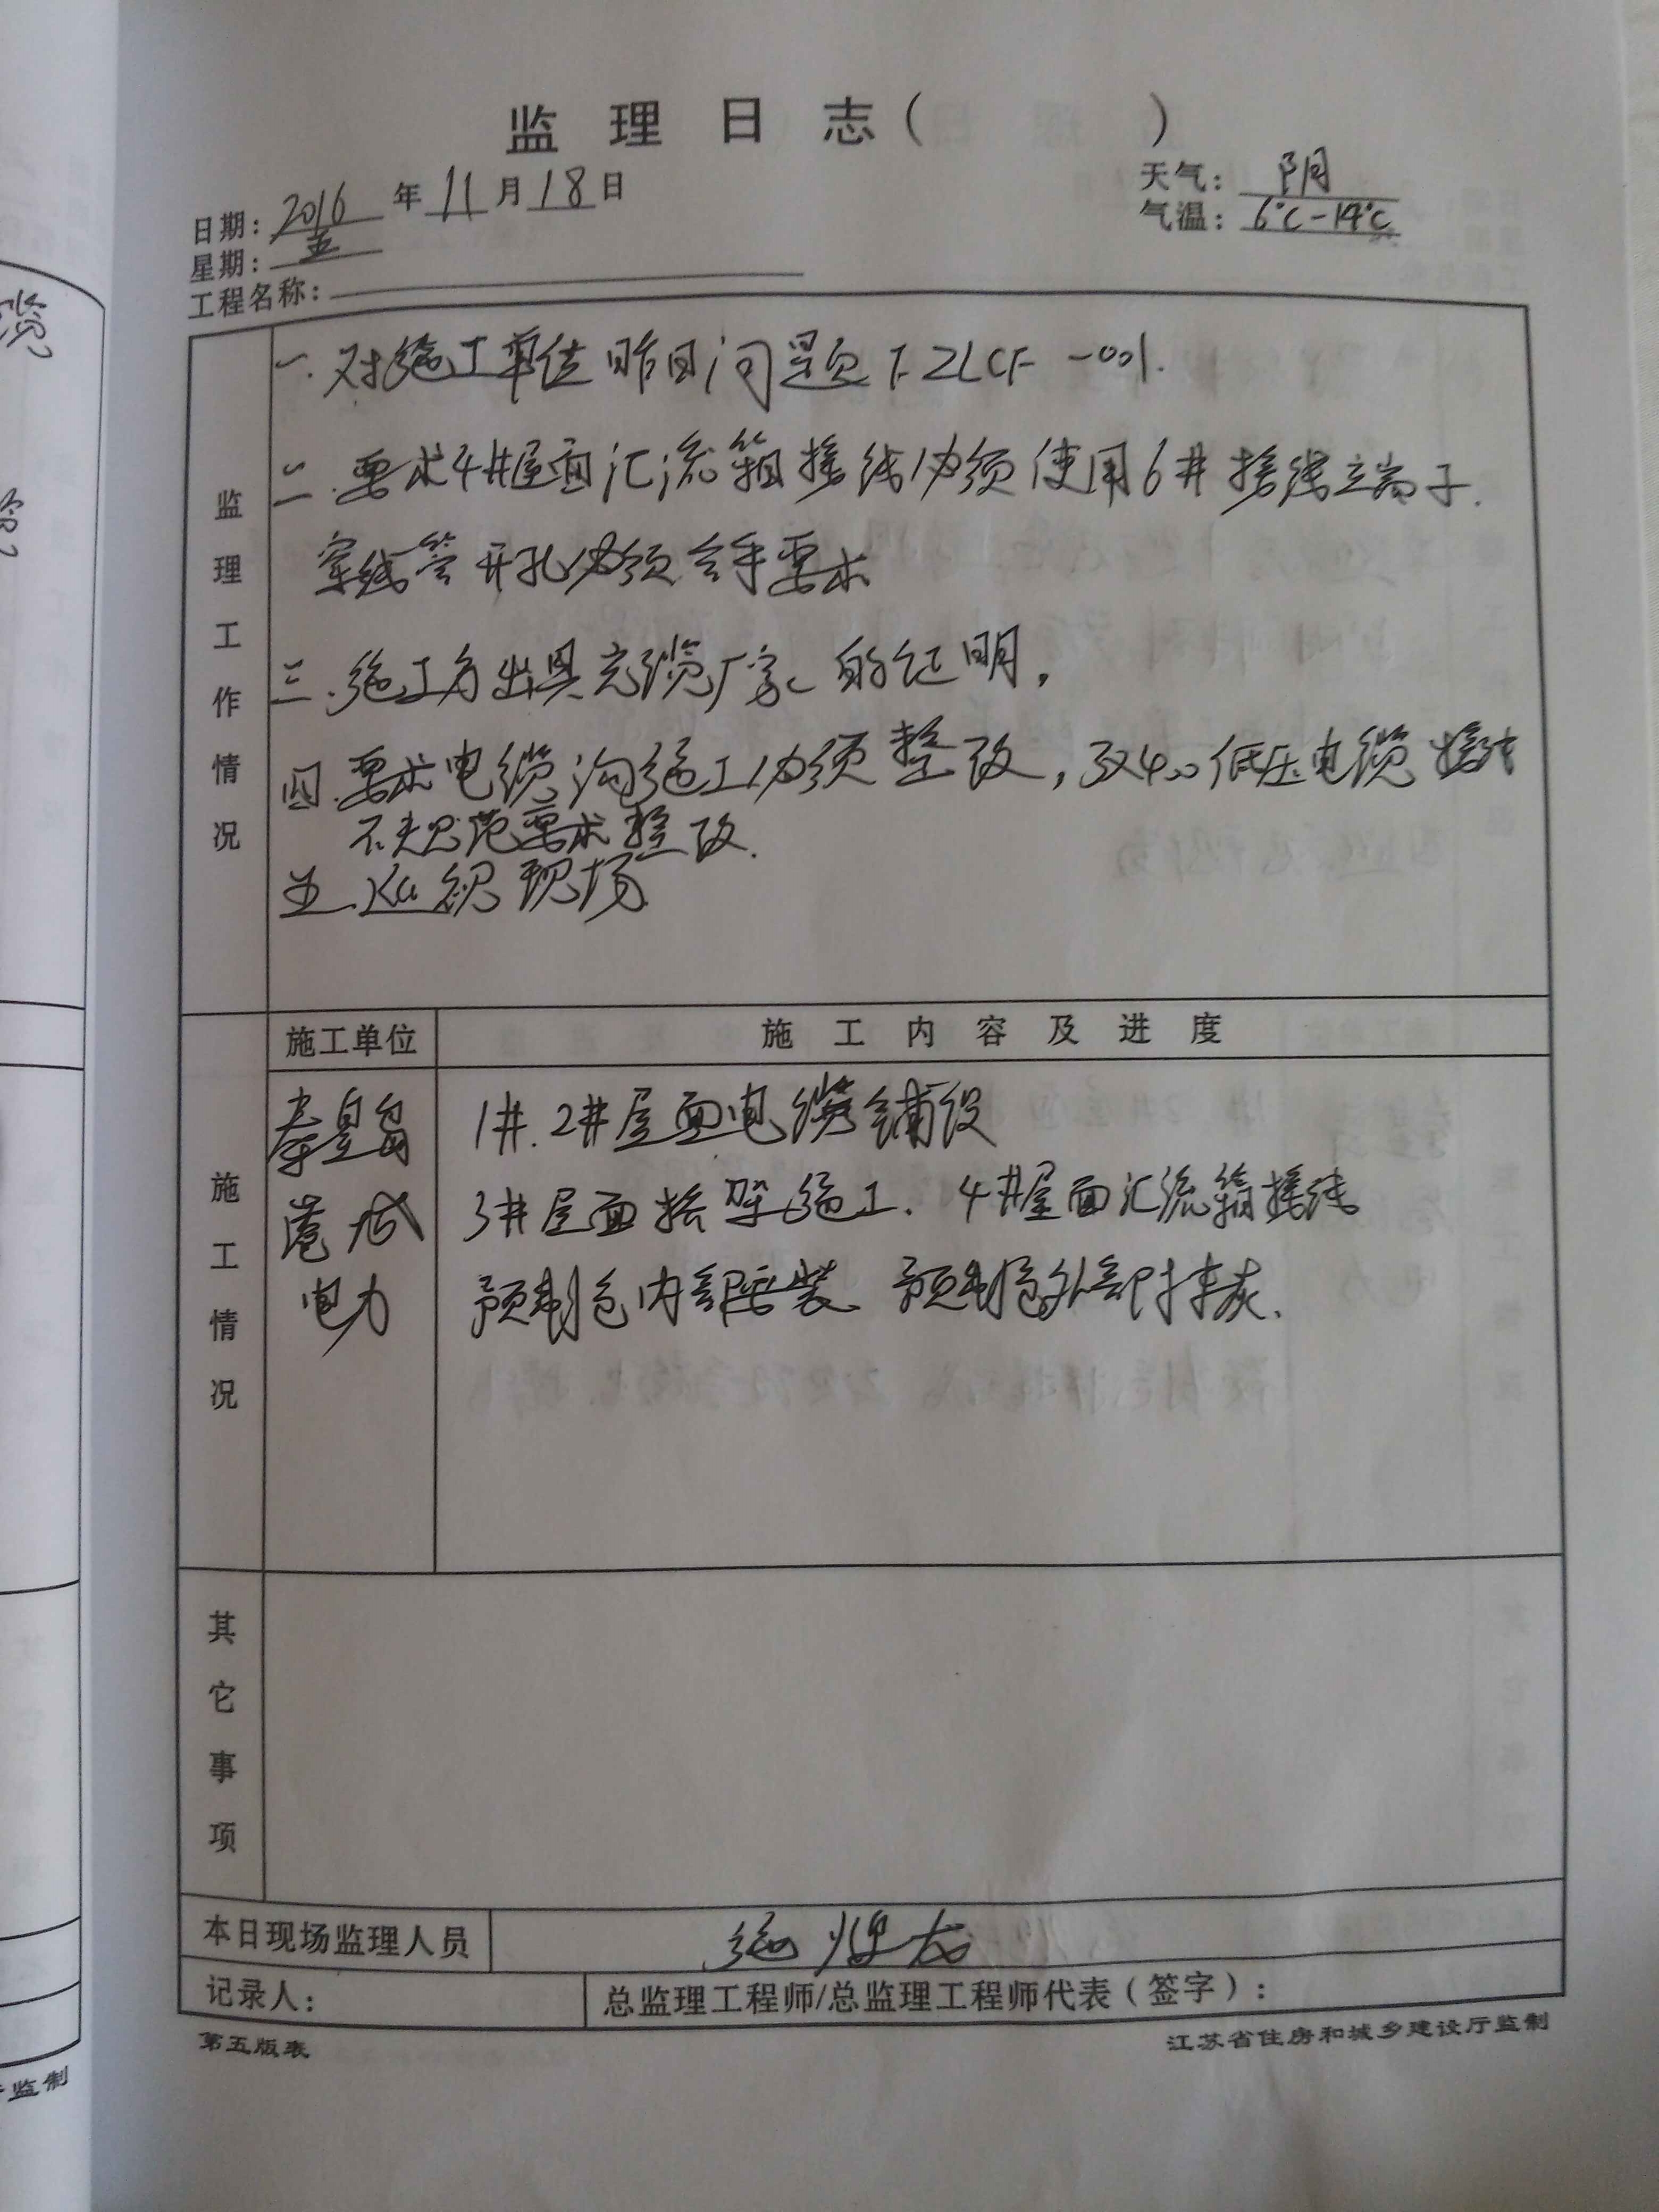 监理日志（　　）
日期：2016年11月18日
天气：阴
星期：五
气温：6℃-14℃
工程名称：
监理工作情况
一.对施工单位昨日问题下ZLCF-001.
二.要求4#屋面汇流箱接线必须使用6#接线端子.
穿线管开孔必须合乎要求
三.施工方出具光缆厂家的证明，
四.要求电缆沟施工必须整改，3x400低压电缆接线
不规范要求整改.
五.巡视现场
施工情况
施工单位
施工内容及进度
秦皇岛
港城
电力
1#.2#屋面电缆铺设
3#屋面桥架施工.4#屋面汇流箱接线
预制仓内部安装 预制仓外部抹灰.
其它事项
本日现场监理人员
施
记录人：
总监理工程师/总监理工程师代表（签字）：
第五版表
江苏省住房和城乡建设厅监制
监制